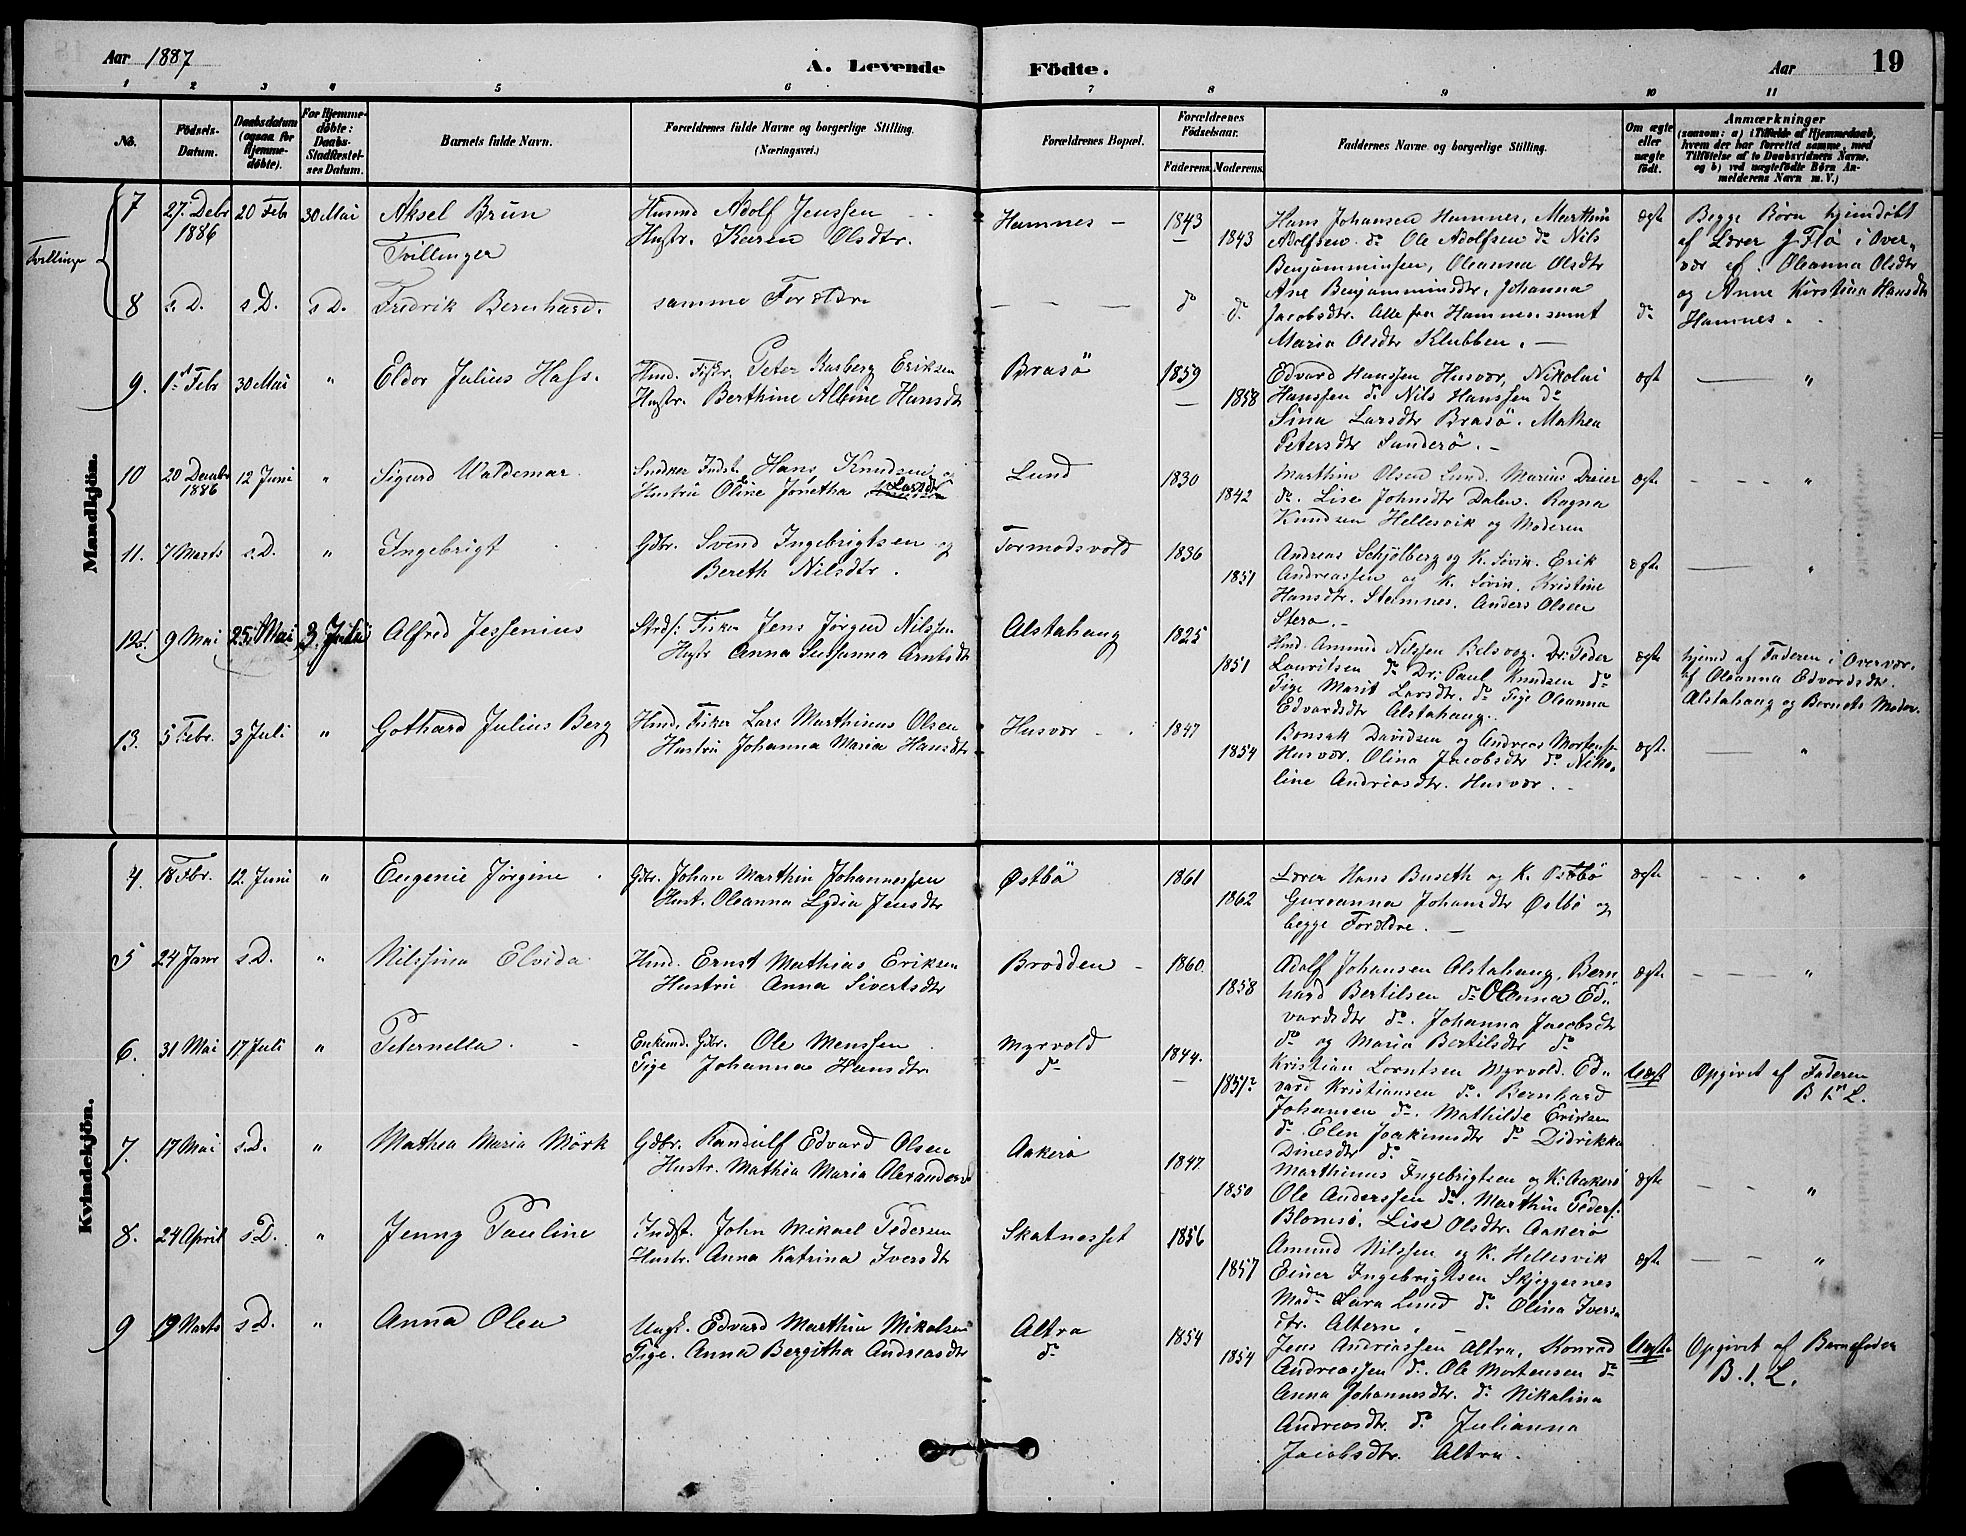 Aar 1887
A. Levende Födte.
Aar
19
1 2 3 4 5 6 7 8 9 10 11
No.
Födsels-Datum.
Daabsdatum (ogsaa for Hjemme-döbte).
For Hjemme-döbte: Daabs-Stadfæstel-ses Datum.
Barnets fulde Navn.
Forældrenes fulde Navne og borgerlige Stilling. (Næringsvei.)
Forældrenes Bopæl.
Forældrenes Födselsaar.
Faderens. Moderens.
Faddernes Navne og borgerlige Stilling.
Om ægte eller uægte födt.
Anmærkninger
(saasom: a) i Tilfælde af Hjemmedaab, hvem der har forrettet samme, med Tilföielse af to Daabsvidners Navne, og b) ved uægtefödte Börn An-melderens Navn m. V.)
Mandkjön.
Tvillinge
7 27. Debr 1886 20 Febr 30 Mai Aksel Brun
Tvillinger
Husmd Adolf Jenssen
Hustr. Karen Olsdtr.
Hamnes 1843 1843
Hans Johansen Hamnes, Marthin
Adolfsen do Ole Adolfsen do Nils
Benjaminsen, Oleanna Olsdtr
Ane Benjamindtr, Johanna
Jacobsdtr. Alle fra Hamnes samt
Maria Olsdtr Klubben.
ægte
Begge Børn hjemdøbt
af Lærer J Flø i Over-
vær af: Oleanna Olsdtr
og Anne Kirstina Hansdtr
Hamnes.
8 s. D. s. D. s D. Fredrik Bernhard. samme Forældre do do do
9. 1ste Febr 30 Mai " Eldor Julius Hass.
Hmd. Fisker. Peter Kasberg Eriksen
Hustr. Berthine Albine Hansdtr
Brasö 1859 1858
Edvard Hanssen Husvær, Nikolai
Hanssen do Nils Hanssen do
Sina Larsdtr Brasö. Mathea
Petersdtr Sanderö.
ægte "
10 20 Decembr 1886 12 Juni " Sigurd Waldemar
Snedker Indst. Hans Knudsen og
Hustru Oline Jonetha Larsdtr
Lund 1830 1842
Marthin Olsen Lund. Marius Dreier
do. Lise Johnsdtr Dalen. Ragna
Knudsen Hellesvik og Moderen
ægte "
11. 7 Marts s. D. " Ingebrigt
Gdbr. Svend Ingebrigtsen og
Bereth Nilsdtr.
Tormodsvold 1836 1851
Andreas Schjølberg og K. Søvin. Erik
Andreassen og K. Søvin. Kristine
Hansdtr. Stamnes. Anders Olsen
Sterø.
ægte "
12. 9 Mai 25 Mai 3. Juli Alfred Jessenius
Strds: Fisker Jens Jørgen Nilssen
Hustr Anna Susanna Arntsdtr
Alstahaug 1825 1851
Hmd. Amund Nilssen Belsvog. Dr: Peder
Lauritsen do Dr: Paul Knudsen do
Pige Marit Larsdtr. do Pige Oleanna
Edvardsdtr Alstahaug.
ægte
hjemd af Faderen i Overvær.
af Oleanna Edvardsdtr.
Alstahaug og Barnets Moder.
13. 5 Febr. 3 Juli " Gothard Julius Berg
Hmd. Fisker Lars Marthinus Olsen
Hustru Johanna Maria Hansdtr
Husvær 1847 1854
Bonsak Davidsen og Andreas Mortens:
Husvær. Olina Jacobsdtr do Niko-
line Andreasdtr. Husvær.
ægte. "
Kvindekjön.
4. 18 Fbr. 12. Juni " Eugenie Jørgine
Gdbr. Johan Marthin Johannessen
Hust. Oleanna Lydia Jensdtr
Østbö 1861 1862
Lærer Hans Buseth og K. Østbö
Gureanna Johansdtr Østbö og
begge Forældre.
ægte "
5 24 Janr s. D. " Nilssina Elvida
Hmd. Ernst Mathias Eriksen
Hustru Anna Sivertsdtr
Brodden 1860. 1858
Adolf Johansen Alstahaug, Bern
hard Bertilsen do Oleanna Ed-
vardsdtr do. Johanna Jacobsdtr
do og Maria Bertilsdtr do
ægte "
6. 31 Mai 17 Juli " Peternella.
Enkemd. Gdbr. Ole Monssen
Pige Johanna Hansdtr
Myrvold
do
1844. 1851
Kristian Lorntsen Myrvold. Ed-
vard Kristiansen do. Bernhard
Johansen do. Mathilde Eriksen
do Elen Joakimsdtr do Didrikka
Dinesdtr do
Uægte
Opgivet af Faderen
B 1 L.
7. 17 Mai s. D. " Mathea Maria Mörk
Gdbr. Randulf Edvard Olsen
Hustr. Mathea Maria Alexandersd
Aakerø 1847 1850
Marthinus Ingebrigtsen og K: Aakerø
Ole Anderssen do. Marthin Peders:
Blomsö. Lise Olsdtr. Aakerø
ægte "
8. 24 April s. D. " Jenny Pauline
Indst. John Mikael Pedersen
Hustr. Anna Katrina Iversdtr
Skatnesset 1856 1857
Amund Nilssen og K. Hellesvik
Einer Ingebrigtsen Skjeggernes
Mad. Lara Lund do Olina Ivers-
dtr. Altern.
ægte "
9 19 Marts s. D. " Anna Olea
Ungk. Edvard Marthin Mikalsen
Pige. Anna Bergitha Andreasdtr
Altra
do
1854 1854
Jens Andreassen Altra, Konrad
Andreassen do. Ole Mortensen do
Anna Johannesdtr. do Nikalina
Andreasdtr do Julianna
Jacobsdtr. Altra.
Uægte
Opgivet af Barnefader
B. 1. L.